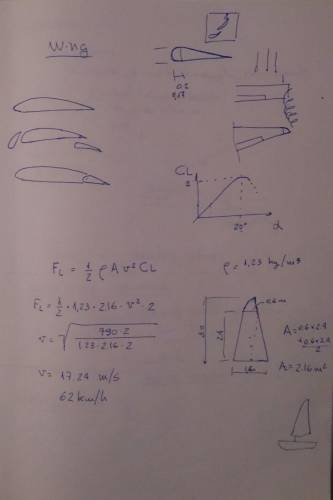 Wing
CL
2
20°
α
F_L = 1/2 ρ A v² CL
ρ = 1,23 kg/m³
F_L = 1/2 · 1,23 · 2.16 · v² · 2
v = √(790·2 / 1.23·2.16·2)
v = 17.24 m/s
62 km/h
0.6m
2.4
A = 0.6×2.4
+ 0.6×2.4 / 2
A = 2.16 m²